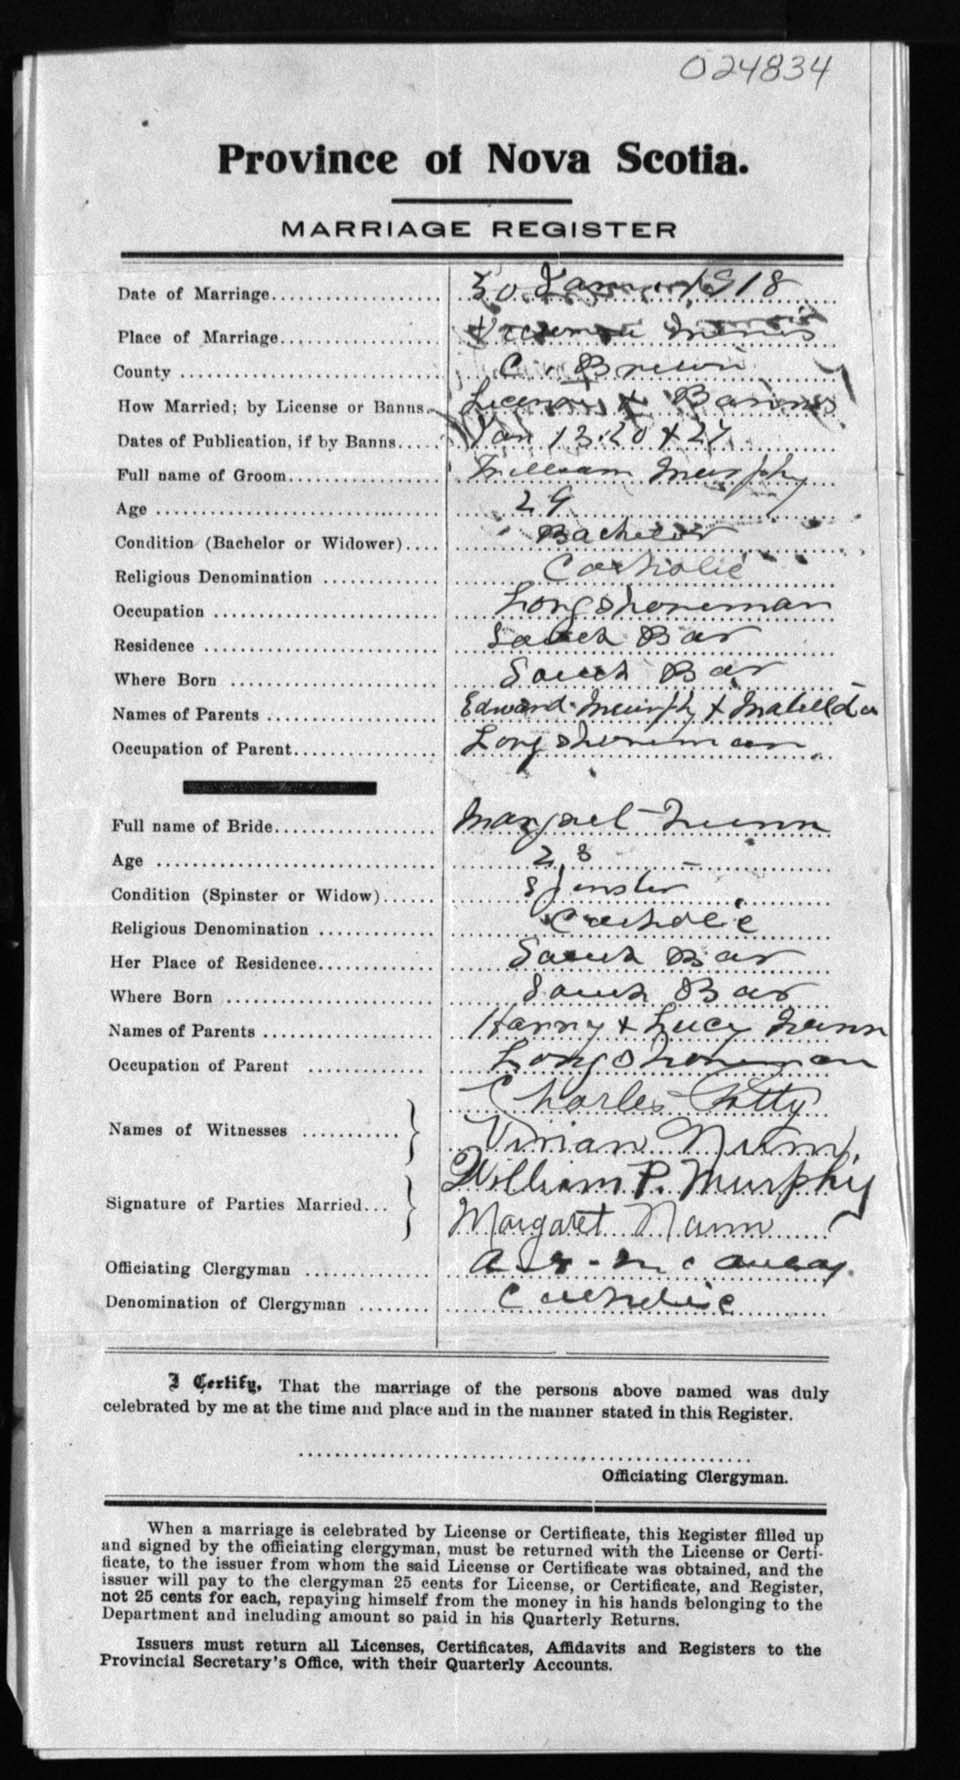 024834
Province of Nova Scotia.
MARRIAGE REGISTER
Date of Marriage 30 January 1918
Place of Marriage Mines
County C. Breton
How Married; by License or Banns License & Banns
Dates of Publication, if by Banns Jan 13. 20 & 27
Full name of Groom William Murphy
Age 29
Condition (Bachelor or Widower) Bachelor
Religious Denomination Catholic
Occupation Longshoreman
Residence South Bar
Where Born South Bar
Names of Parents Edward Murphy & Matilda
Occupation of Parent Longshoreman
Full name of Bride Margaret Nunn
Age 28
Condition (Spinster or Widow) Spinster
Religious Denomination Catholic
Her Place of Residence South Bar
Where Born South Bar
Names of Parents Harry & Lucy Nunn
Occupation of Parent Longshoreman
Charles
Names of Witnesses
Vivian Nunn
William P. Murphy
Signature of Parties Married
Margaret Nunn
Officiating Clergyman
Denomination of Clergyman Catholic
I Certify, That the marriage of the persons above named was duly
celebrated by me at the time and place and in the manner stated in this Register.
Officiating Clergyman.
When a marriage is celebrated by License or Certificate, this Register filled up
and signed by the officiating clergyman, must be returned with the License or Certi-
ficate, to the issuer from whom the said License or Certificate was obtained, and the
issuer will pay to the clergyman 25 cents for License, or Certificate, and Register,
not 25 cents for each, repaying himself from the money in his hands belonging to the
Department and including amount so paid in his Quarterly Returns.
Issuers must return all Licenses, Certificates, Affidavits and Registers to the
Provincial Secretary's Office, with their Quarterly Accounts.